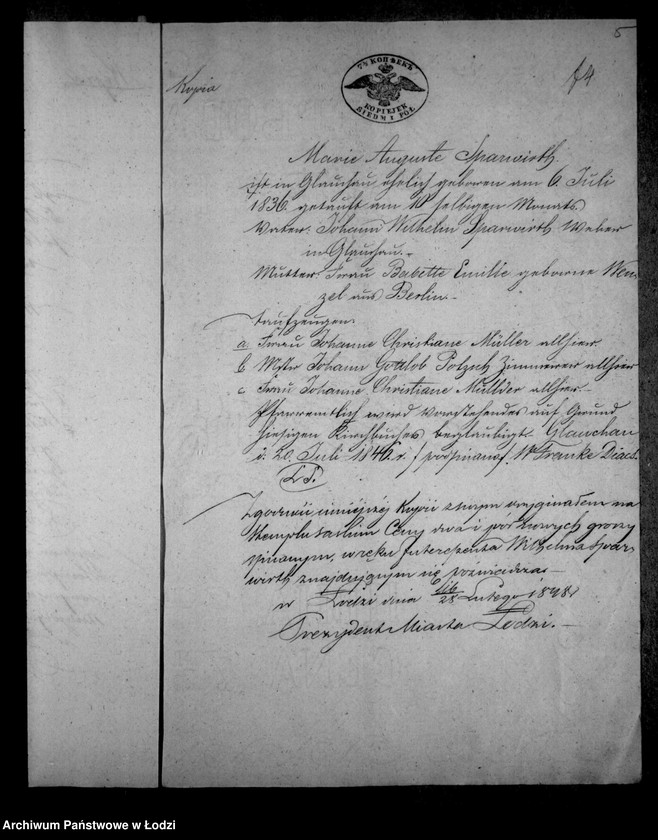 5
74
Kopia
7½ КОПѢЕКЪ
KOPIEJEK
SIEDM I PÓŁ
Marie Auguste Sparwirth
ist in Glauchau ehelich geboren am 6. Juli
1836. getauft am 10 selbigen Monats
Vater. Johann Wilhelm Sparwirth Weber
in Glauchau.-
Mutter. Frau Babette Emilie geborne Wen-
zel aus Berlin.-
Taufzeugen.
a Frau Johanne Christiane Müller allhier
b Mstr Johann Gottlob Polzuh Zimmerer allhier
c Frau Johanne Christiane Müller allhier.-
Pfarramtlich ward Vorstehendes auf Grund
hiesigen Kirchbuches beglaubigt. Glauchau
d. 20. Juli 1846. r. / podpisano / Franke Diacs.
L.S.
Zgodność niniejszej Kopii z swym oryginałem na
Stemplu saskim Ceny dwa i pół nowych groszy
pisanym, w ręku Interesenta Wilhelma Spar-
wirth znajdującym się poświadcza.-
w Łodzi dnia 16/28 Lutego 1848 r
Prezydent Miasta Łodzi.-
Archiwum Państwowe w Łodzi